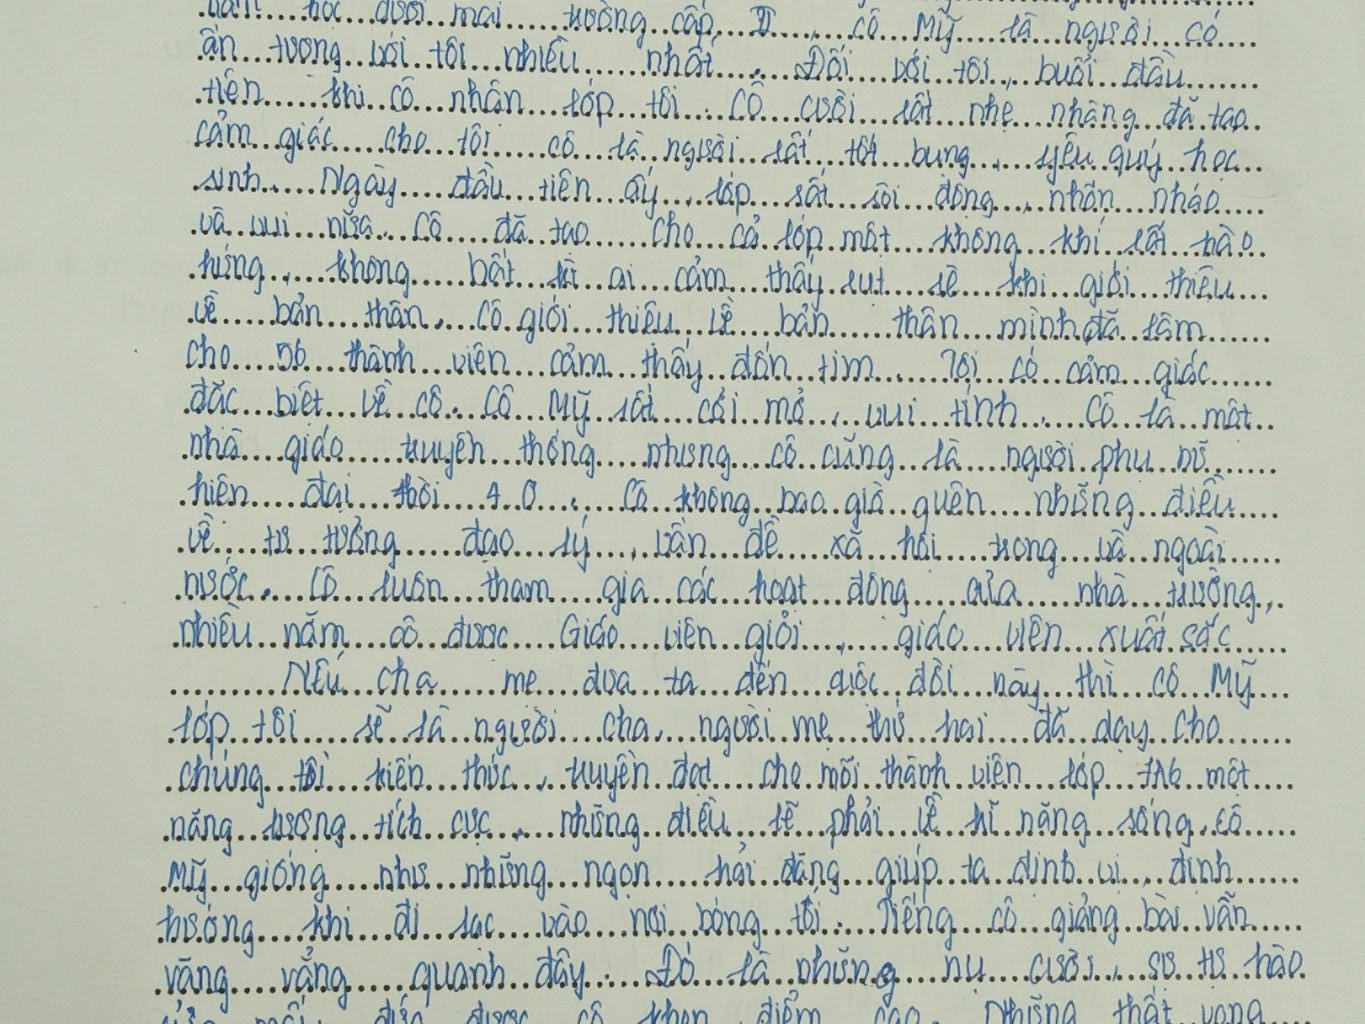 năm học dưới mái trường cấp II, cô Mỹ là người có
ấn tượng với tôi nhiều nhất. Đối với tôi, buổi đầu
tiên khi cô nhận lớp tôi. Cô cười rất nhẹ nhàng đã tạo
cảm giác cho tôi cô là người rất tốt bụng, yêu quý học
sinh. Ngày đầu tiên ấy, lớp rất sôi động, nhốn nháo
và vui nữa. Cô đã tạo cho cả lớp một không khí rất hào
hứng, không bất kì ai cảm thấy rụt rè khi giới thiệu
về bản thân. Cô giới thiệu về bản thân mình đã làm
cho 56 thành viên cảm thấy đốn tim. Tôi có cảm giác
đặc biệt về cô. Cô Mỹ rất cởi mở, vui tính. Cô là một
nhà giáo truyền thống nhưng cô cũng là người phụ nữ
hiện đại thời 4.0. Cô không bao giờ quên những điều
về tư tưởng đạo lý, vấn đề xã hội trong và ngoài
nước. Cô luôn tham gia các hoạt động của nhà trường,
nhiều năm cô được Giáo viên giỏi, giáo viên xuất sắc
Nếu cha mẹ đưa ta đến cuộc đời này thì cô Mỹ
lớp tôi sẽ là người cha, người mẹ thứ hai đã dạy cho
chúng tôi kiến thức, truyền đạt cho mỗi thành viên lớp 7A6 một
năng lượng tích cực, những điều lẽ phải về kĩ năng sống. Cô
Mỹ giống như những ngọn hải đăng giúp ta định vị, định
hướng khi đi lạc vào nơi bóng tối. Tiếng cô giảng bài vẫn
văng vẳng quanh đây. Đó là những nụ cười, sự tự hào
đứa được cô khen điểm cao. Những thất vọng